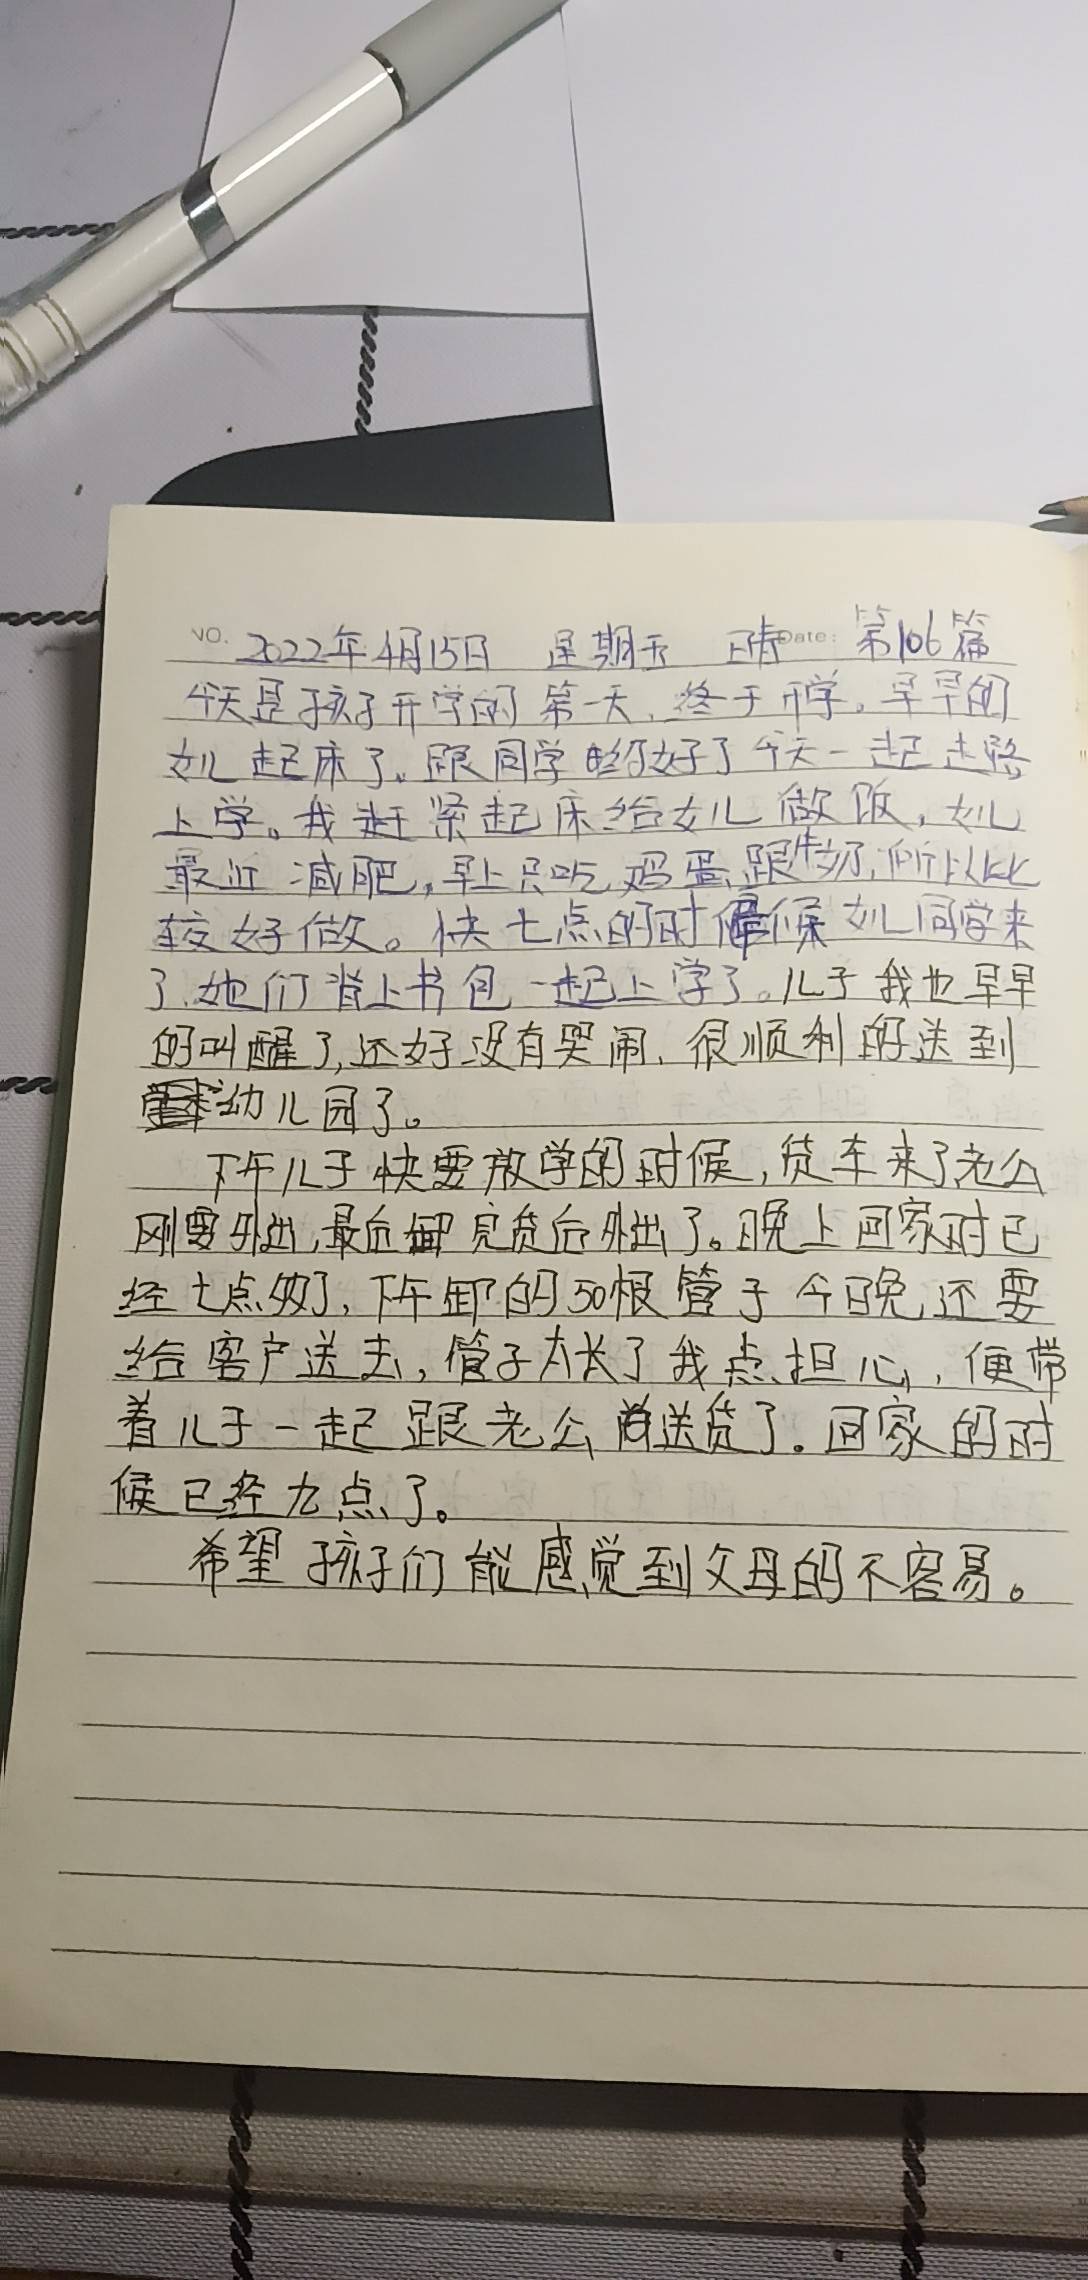 NO. 2022年4月15日 星期五 晴 Date: 第106篇
今天是孩子开学的第一天,终于开学。早早的
女儿起床了。跟同学约好了今天一起走路
上学。我赶紧起床给女儿做饭,女儿
最近减肥,早上只吃鸡蛋跟牛奶,所以比
较好做。快七点的时候女儿同学来
了,她们背上书包一起上学了。儿子我也早早
的叫醒了,还好没有哭闹,很顺利的送到
幼儿园了。
下午儿子快要放学的时候,货车来了老公
刚要外出,最后卸完货后外出了。晚上回家时已
经七点多了,下午卸的50根管子今晚还要
给客户送去,管子太长了我点担心,便带
着儿子一起跟老公送货了。回家的时
候已经九点了。
希望孩子们能感觉到父母的不容易。